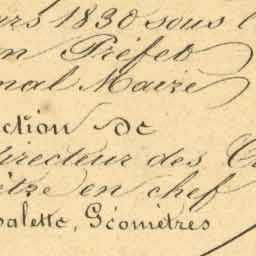 ars 1830 sous l
n Préfet
nal Maire
ction de
directeur des C
ètre en chef
alette, Géomètres